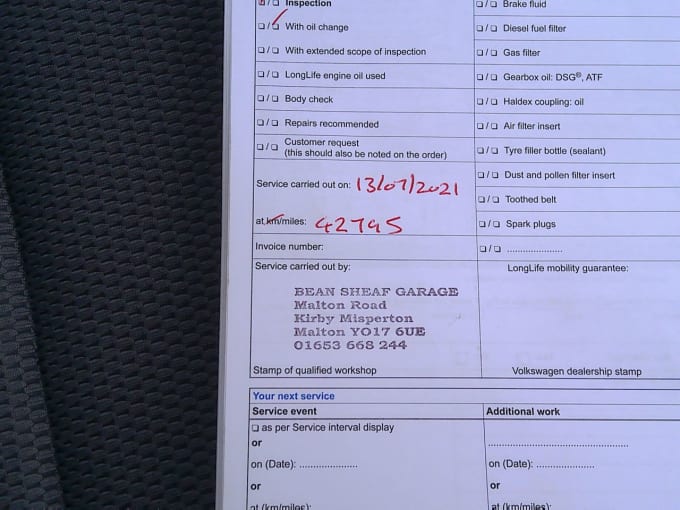 Inspection
With oil change
With extended scope of inspection
LongLife engine oil used
Body check
Repairs recommended
Customer request
(this should also be noted on the order)
Service carried out on: 13/07/2021
at km/miles: 42795
Invoice number:
Service carried out by:
BEAN SHEAF GARAGE
Malton Road
Kirby Misperton
Malton YO17 6UE
01653 668 244
Stamp of qualified workshop
Brake fluid
Diesel fuel filter
Gas filter
Gearbox oil: DSG®, ATF
Haldex coupling: oil
Air filter insert
Tyre filler bottle (sealant)
Dust and pollen filter insert
Toothed belt
Spark plugs
LongLife mobility guarantee:
Volkswagen dealership stamp
Your next service
Service event
as per Service interval display
or
on (Date): ....................
or
at (km/miles):
Additional work
on (Date): ....................
or
at (km/miles):